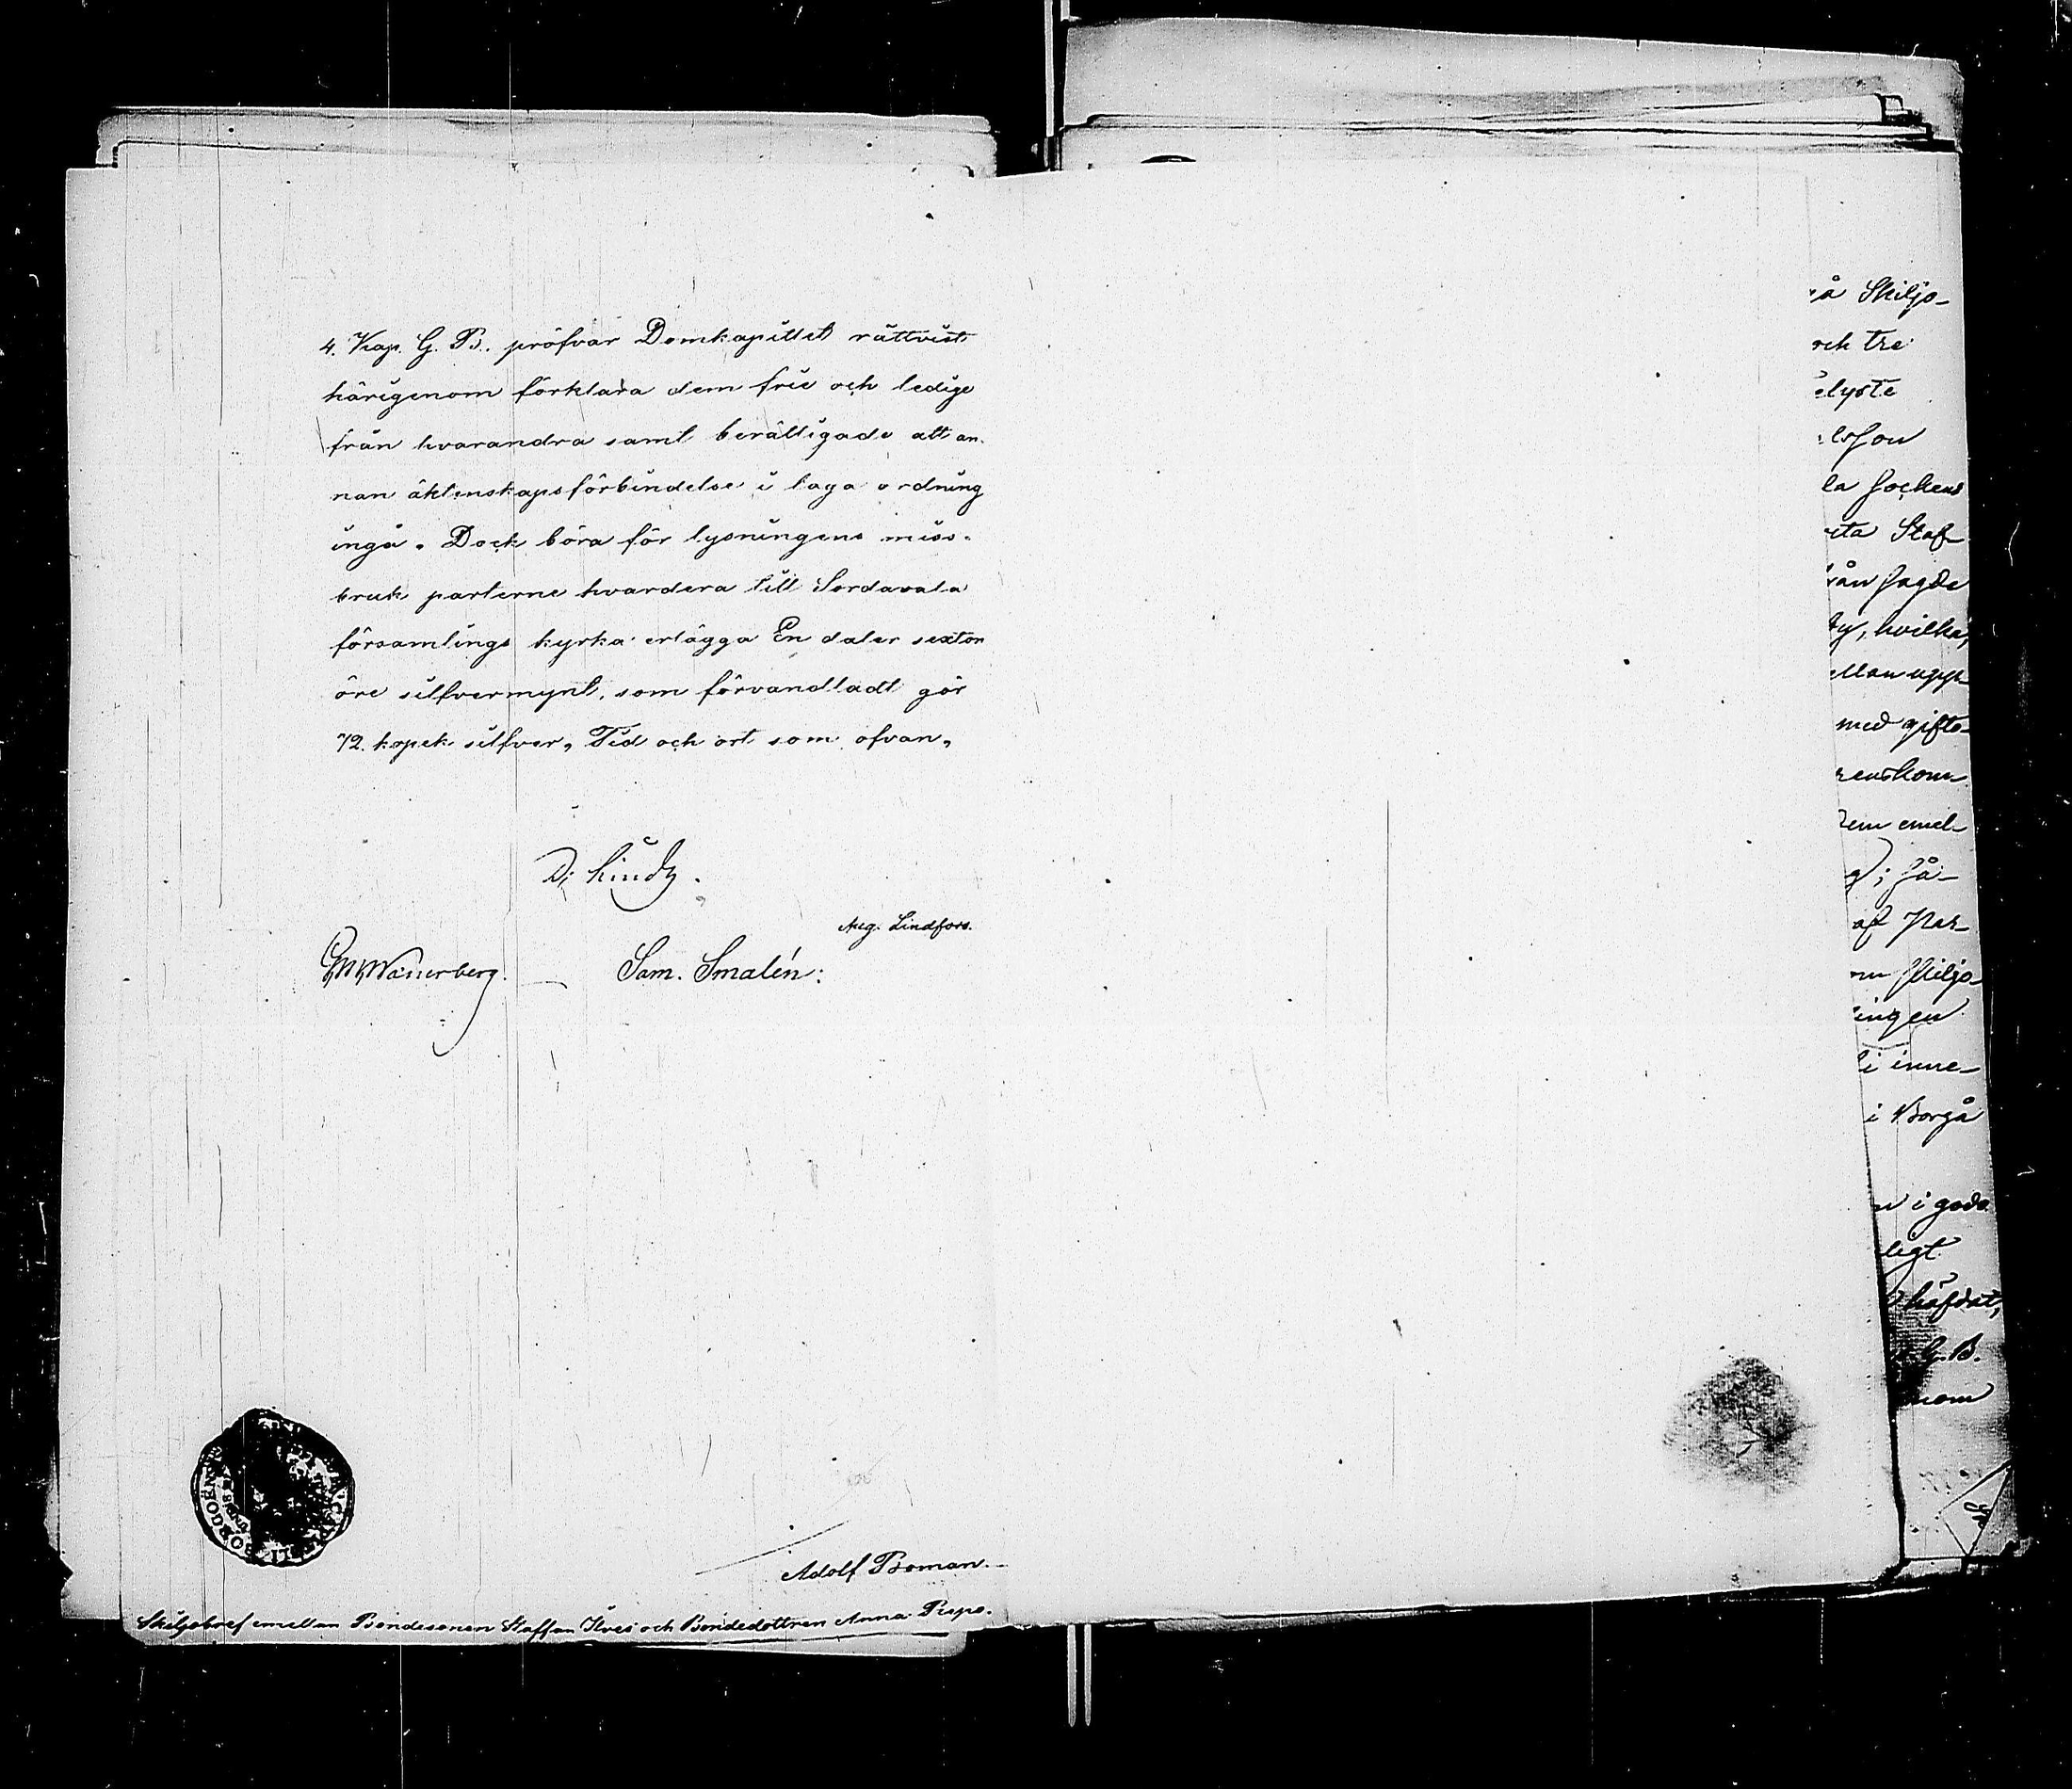 4. Kap. G. B. pröfvar Domkapitlet rättvist
härigenom förklara dem frie och ledige
från hvarandra samt berättigade att an-
nan äktenskapsförbindelse i laga ordning
ingå. Dock böra för lysningens miss-
bruk parterne hvardera till Sordavala
församlings kyrka erlägga En daler sexton
öre silfvermynt, som förvandladt gör
72 kopek silfver. Tid och ort som ofvan.
Aug. Lindfors.
Sam. Smalén:
Adolf Boman.
Skiljobref emellan Bondesonen Staffan Ilves och Bondedottren Anna
å Skiljo-
och tre
elyste
la Sockens
eta Staf-
från sagde
by, hvilka,
ellan upp-
med gifto-
renskom
dem emel-
d; så-
af Par-
om Skiljo-
ingen
li inne-
i Borgå
n i godo
ligt
häfdat,
G. B.
nom